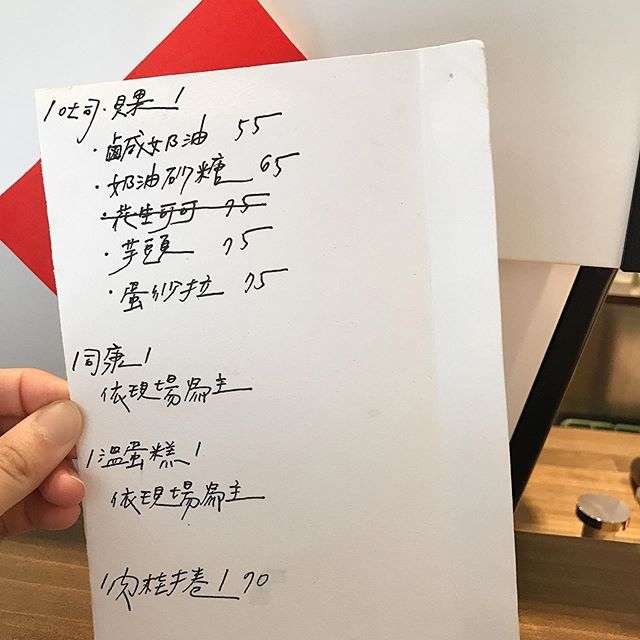 /吐司·貝果/
·鹹奶油 55
·奶油砂糖 65
·花生可可 75
·芋頭 75
·蛋沙拉 75
/司康/
依現場為主
/溫蛋糕/
依現場為主
/肉桂捲/ 70